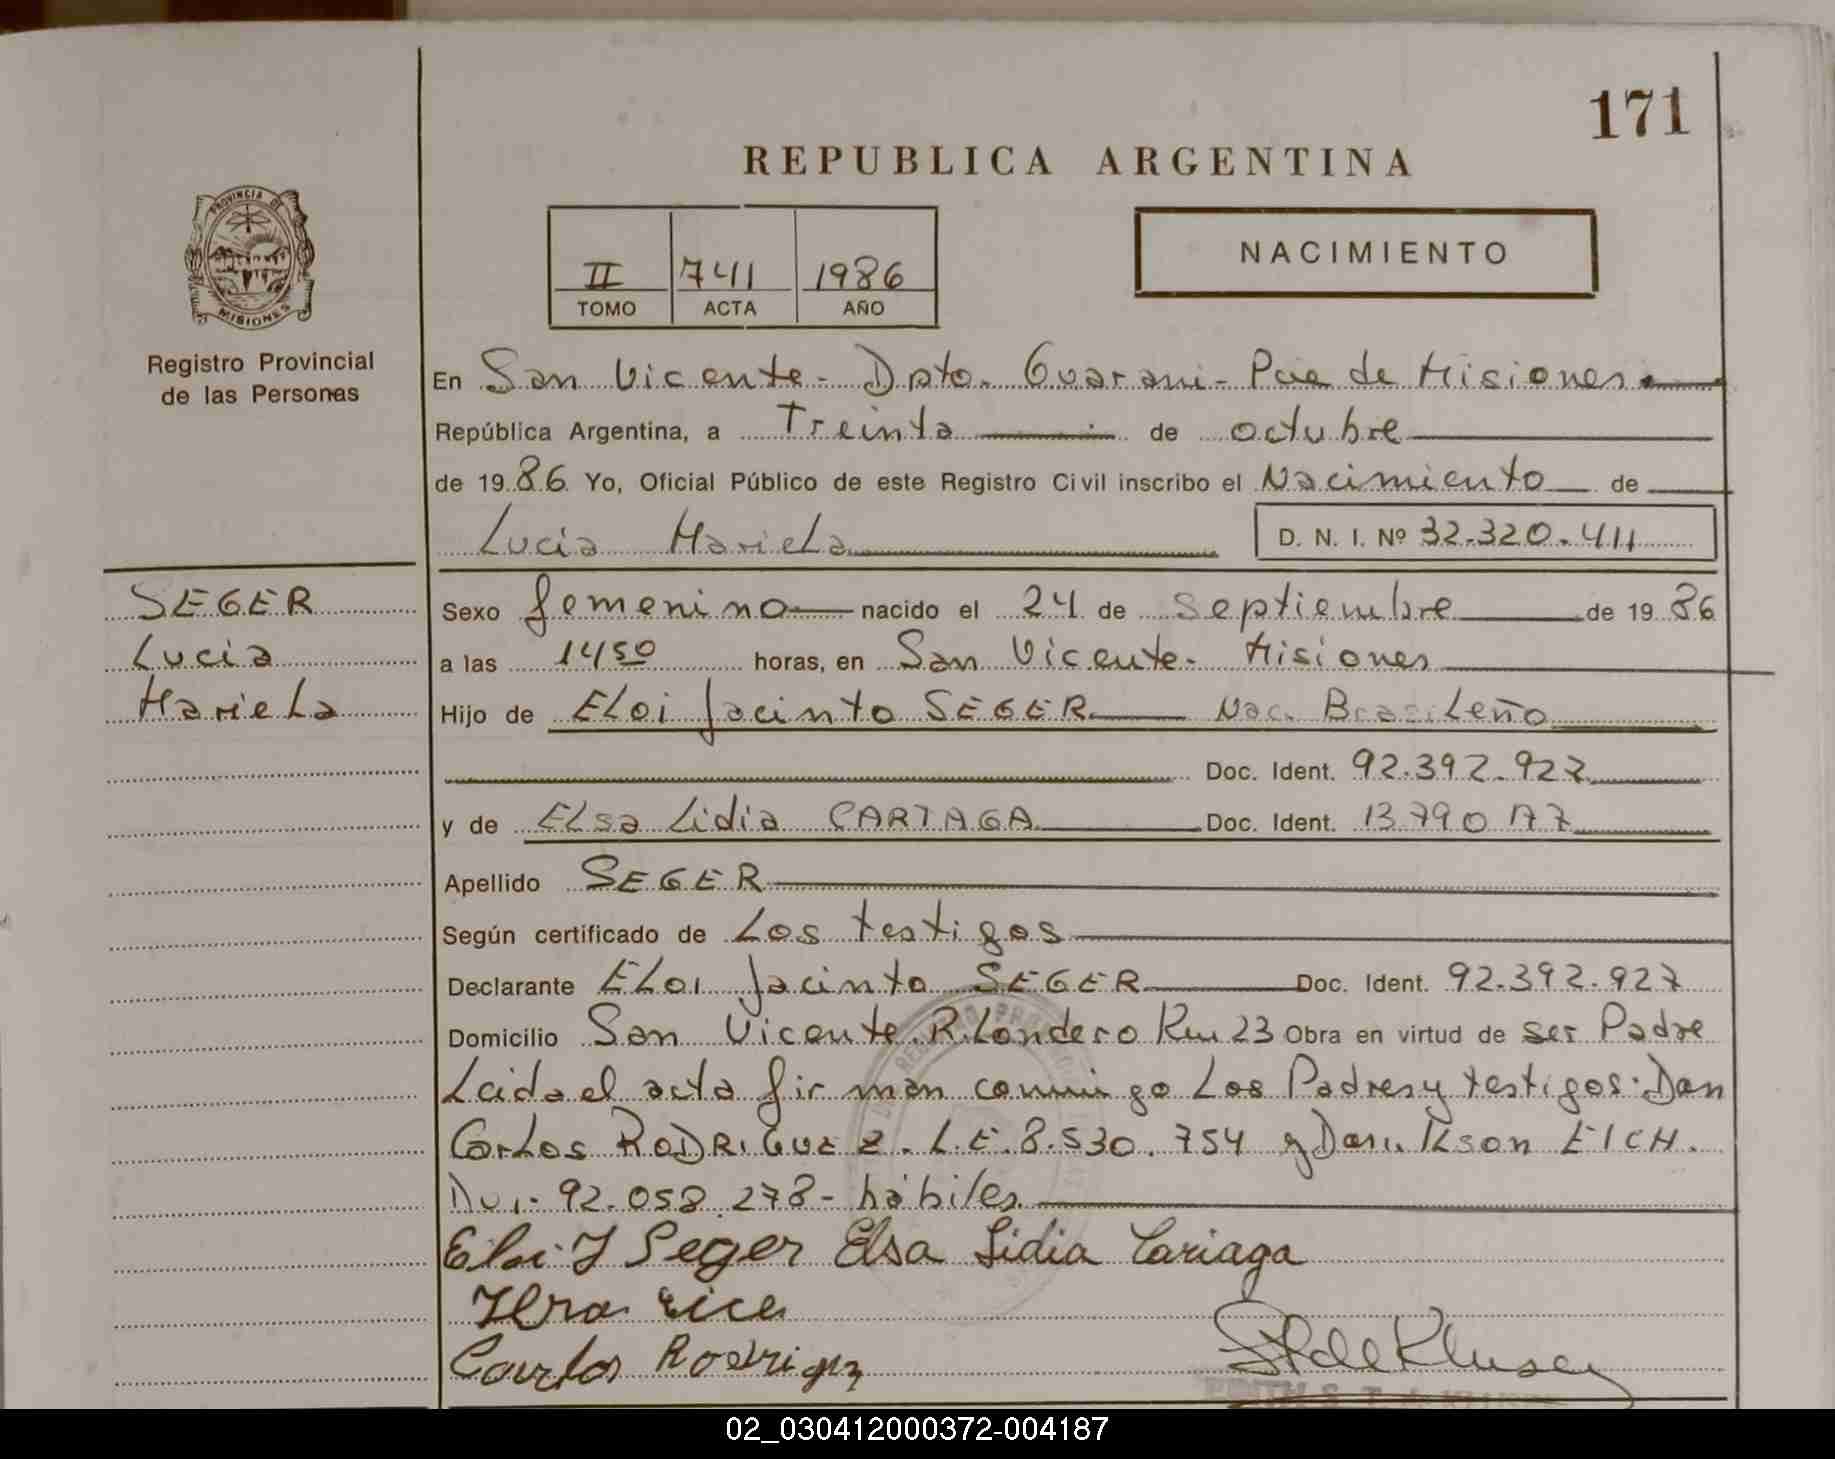 171
REPUBLICA ARGENTINA
PROVINCIA DE
MISIONES
Registro Provincial
de las Personas
II 741 1986
TOMO ACTA AÑO
NACIMIENTO
En San Vicente - Dpto. Guarani - Pcia de Misiones
República Argentina, a Treinta de octubre
de 19 86 Yo, Oficial Público de este Registro Civil inscribo el Nacimiento de
Lucia Mariela D. N. I. Nº 32.320.411
SEGER
Lucia
Mariela
Sexo femenino nacido el 24 de Septiembre de 19 86
a las 14 50 horas, en San Vicente - Misiones
Hijo de Eloi Jacinto SEGER Nac. Brasileño
Doc. Ident. 92.392.927
y de Elsa Lidia CARIAGA Doc. Ident. 13.790.177
Apellido SEGER
Según certificado de Los testigos
Declarante Eloi Jacinto SEGER Doc. Ident. 92.392.927
Domicilio San Vicente. R. Londero Km 23 Obra en virtud de ser Padre
Leida el acta firman conmigo Los Padres y testigos: Don
Carlos RODRIGUEZ. L.E. 8.530.754 y Don Ilson EICH.
Dni - 92.058.278 - hábiles.
Eloi J Seger Elsa Lidia Cariaga
Carlos Rodriguez
02_030412000372-004187